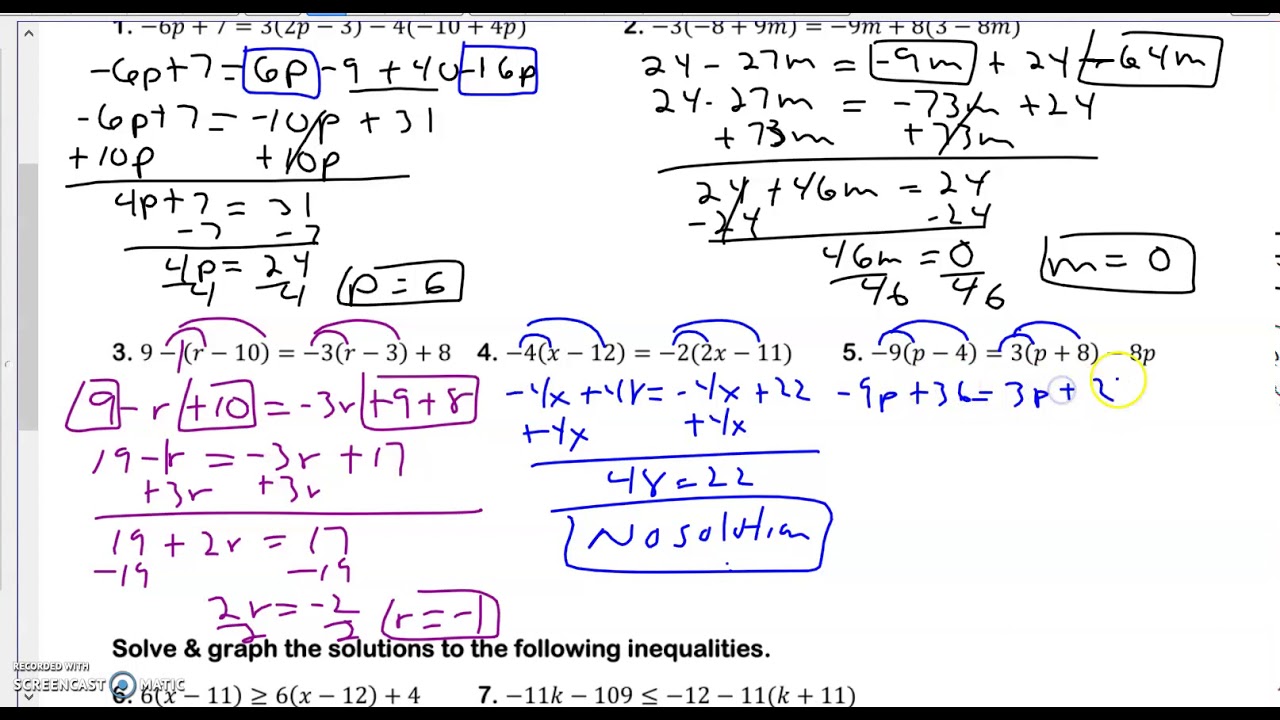 1. −6p + 7 = 3(2p − 3) − 4(−10 + 4p)
-6p+7=6p-9+40-16p
-6p+7=-10p+31
+10p +10p
4p+7=31
-7 -7
4p=24
4 4
p=6
2. −3(−8 + 9m) = −9m + 8(3 − 8m)
24-27m=-9m+24-64m
24-27m=-73m+24
+73m +73m
24+46m=24
-24 -24
46m=0
46 46
m=0
3. 9 − (r − 10) = −3(r − 3) + 8
9-r+10=-3r+9+8
19-r=-3r+17
+3r +3r
19+2r=17
-19 -19
2r=-2
2 2
r=-1
4. −4(x − 12) = −2(2x − 11)
-4x+48=-4x+22
+4x +4x
48=22
No solution
5. −9(p − 4) = 3(p + 8) − 8p
-9p+36=3p+2
Solve & graph the solutions to the following inequalities.
6. 6(x − 11) ≥ 6(x − 12) + 4
7. −11k − 109 ≤ −12 − 11(k + 11)
RECORDED WITH
SCREENCAST MATIC